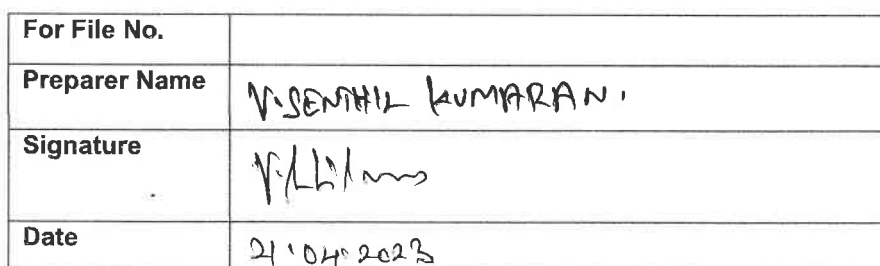 For File No.
Preparer Name V. SENTHIL KUMARAN.
Signature
Date 21.04.2023